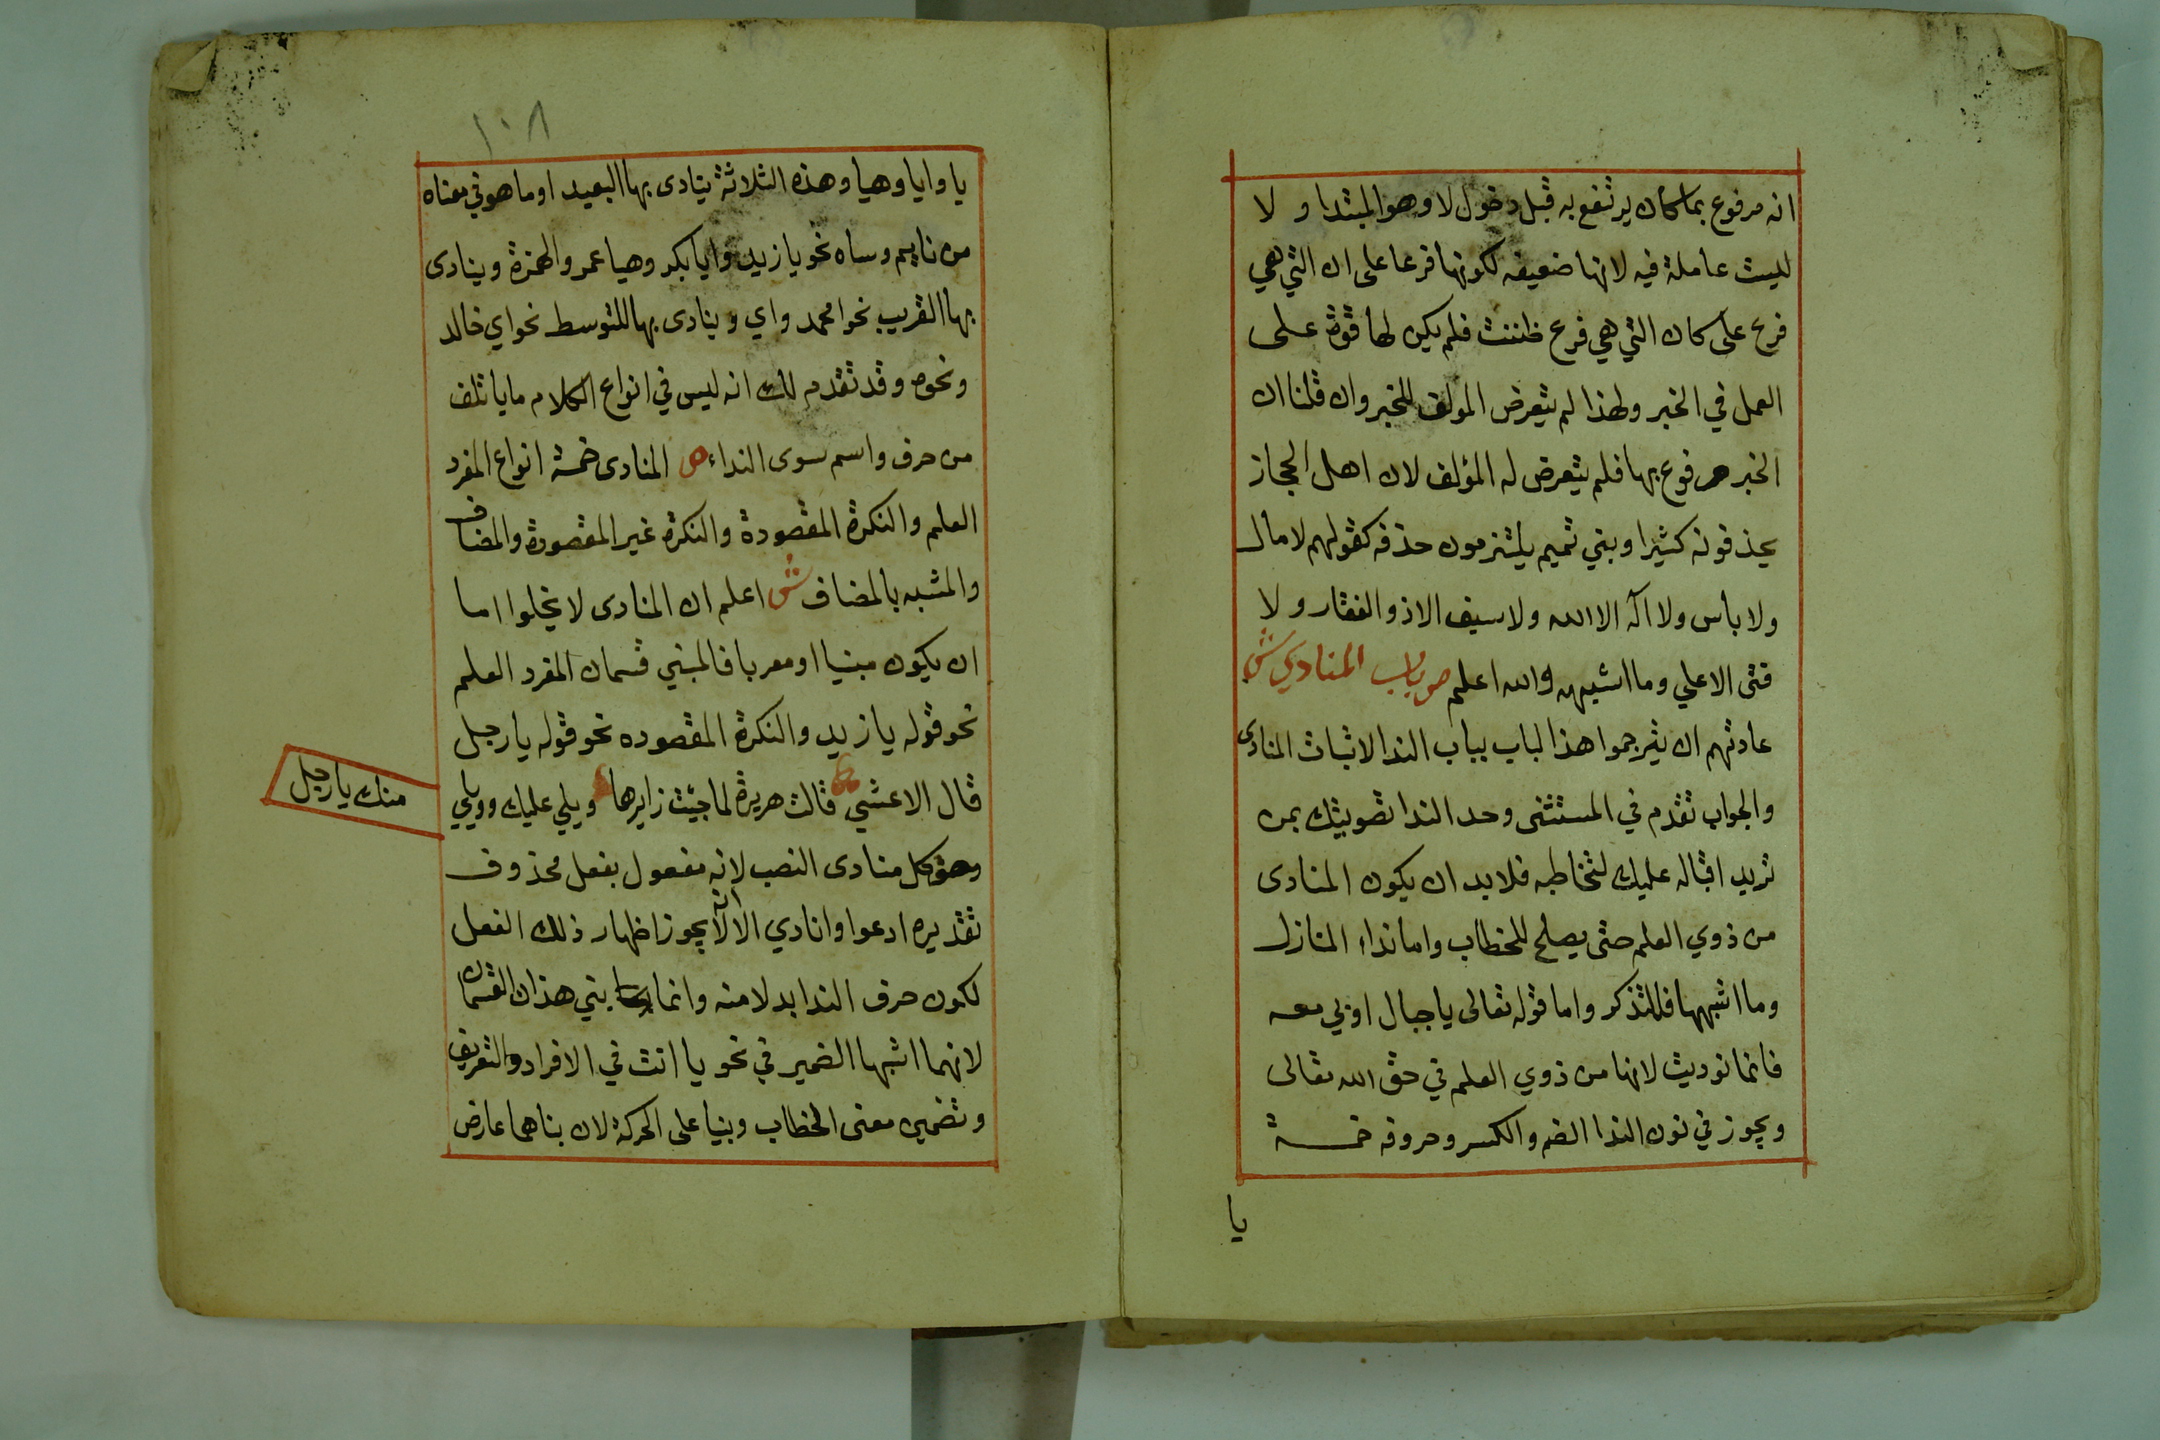 انه مرفوع بما كان يرتفع به قبل دخول لا وهو المبتدا و لا
ليست عاملة فيه لانها ضعيفه لكونها فرعا على ان التي هي
فرع على كان التي هي فرع ظننت فلم يكن لها قوة على
العمل في الخبر ولهذا لم يتعرض المولف للخبر وان قلنا ان
الخبر مرفوع بها فلم يتعرض له المؤلف لان اهل الحجاز
يحذفونه كثيرا وبني تميم يلتزمون حذفه كقولهم لا مال
ولا باس ولا اله الا الله ولا سيف الا ذو الفقار و لا
فتى الا علي وما اشبهه والله اعلم ص باب المنادي ش
عادتهم ان يترجموا هذا الباب بباب الندا لاثبات المنادى
والجواب تقدم في المستثنى وحد الندا تصويتك بمن
تريد اقباله عليك لتخاطبه فلابد ان يكون المنادى
من ذوي العلم حتى يصلح للخطاب واما نداء المنازل
وما اشبهها فللتذكر واما قوله تعالى يا جبال اوبي معه
فانما نوديت لانها من ذوي العلم في حق الله تعالى
ويجوز في نون الندا الضم والكسر وحروفه خمسة
يا
١٠٨
يا وايا وهيا وهذه الثلاثة ينادى بها البعيد او ما هو في معناه
من نايم وساه نحو يا زيد وايا بكر وهيا عمر والهمزة وينادى
بها القريب نحو امحمد واي وينادى بها للتوسط نحو اي خالد
ونحوه وقد تقدم لك انه ليس في انواع الكلام ما ياتلف
من حرف واسم سوى النداء ص المنادى خمسة انواع المفرد
العلم والنكرة المقصودة والنكرة غير المقصودة والمضاف
والمشبه بالمضاف ش اعلم ان المنادى لا يخلوا اما
ان يكون مبنيا او معربا فالمبني قسمان المفرد العلم
نحو قوله يا زيد والنكرة المقصوده نحو قوله يا رجل
قال الاعشي قالت هريرة لما جيئت زايرها ويلي عليك وويلي
منك يا رجل
وحق كل منادى النصب لانه مفعول بفعل محذوف
تقديره ادعوا وانادي الا انه لا يجوز اظهار ذلك الفعل
لكون حرف الندا بدلا منه وانما بني هذان القسمان
لانهما اشبها الضمير في نحو يا انت في الافراد والتعريف
وتضمين معنى الخطاب وبنيا على الحركة لان بناهما عارض